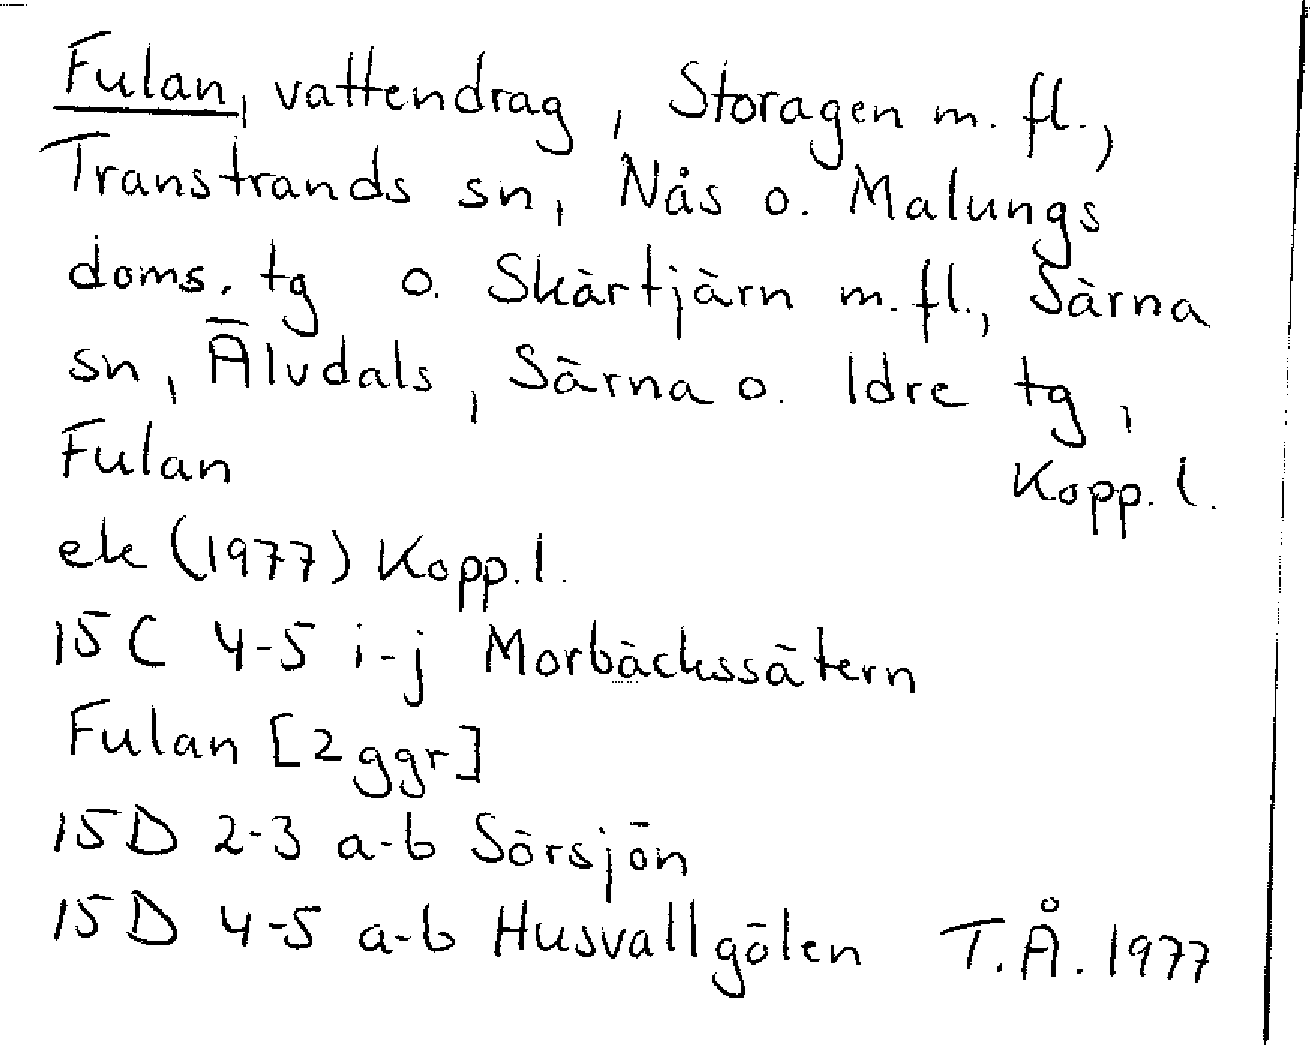 Fulan, vattendrag, Storagen m. fl.,
Transtrands sn, Nås o. Malungs
doms. tg o. Skärtjärn m. fl., Särna
sn, Älvdals, Särna o. Idre tg,
Fulan Kopp. l.
ek (1977) Kopp. l.
15 C 4-5 i-j Morbäckssätern
Fulan [2 ggr]
15 D 2-3 a-b Sörsjön
15 D 4-5 a-b Husvallgölen T.Å. 1977